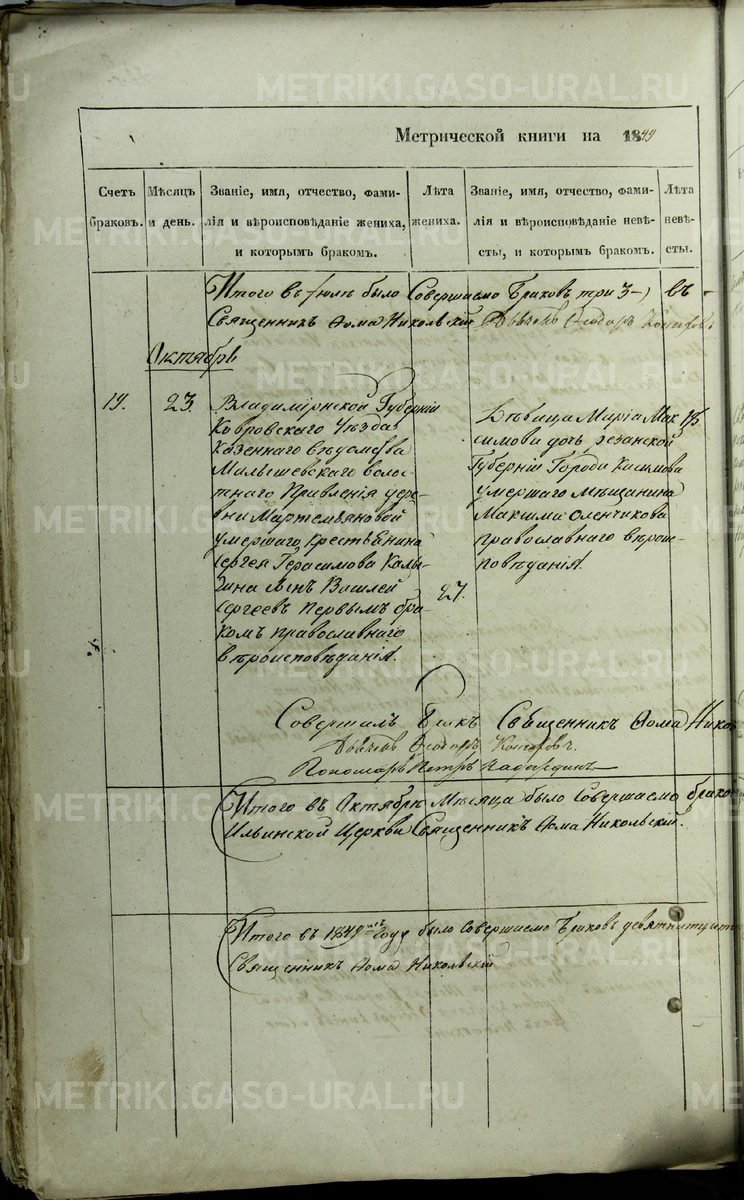 Метрической книги на 1849
Счетъ браковъ.
Мѣсяцъ и день.
Званіе, имя, отчество, фами-
лія и вѣроисповѣданіе жениха,
и которымъ бракомъ.
Лѣта жениха.
Званіе, имя, отчество, фами-
лія и вѣроисповѣданіе невѣ-
сты, и которымъ бракомъ.
Лѣта невѣ-
сты.
Итого въ Июлѣ было Совершаемо Браковъ три 3 въ
Священникъ Фома Никольскій Дьячекъ Феодоръ
Октябрь
19.
23.
Владимірской Губерніи
Ковровскаго Уѣзда
Казеннаго вѣдомства
Малышевскаго Волос-
тнаго Правленія дере-
вни Мартемьяновой
умершаго Крестьянина
Сергея Герасимова Калы-
гина сынъ Василей
Сергеевъ Первымъ бра-
комъ православнаго
вѣроисповѣданія.
27.
Дѣвица Марія Мак
симова дочь Резанской
Губерніи Города Касимова
умершаго мѣщанина
Максима Оленчикова
православнаго вѣроис-
повѣданія.
18
Совершилъ Бракъ Священникъ Фома Никол
Дьячекъ Феодоръ
Пономарь Петръ
Итого въ Октябрѣ Мѣсяца было Совершаемо брако
Ильинской Церкви Священникъ Фома Никольскій.
Итого въ 1849 Году было Совершаемо Браковъ девятнатцать
Священникъ Фома Никольскій
METRIKI.GASO-URAL.RU